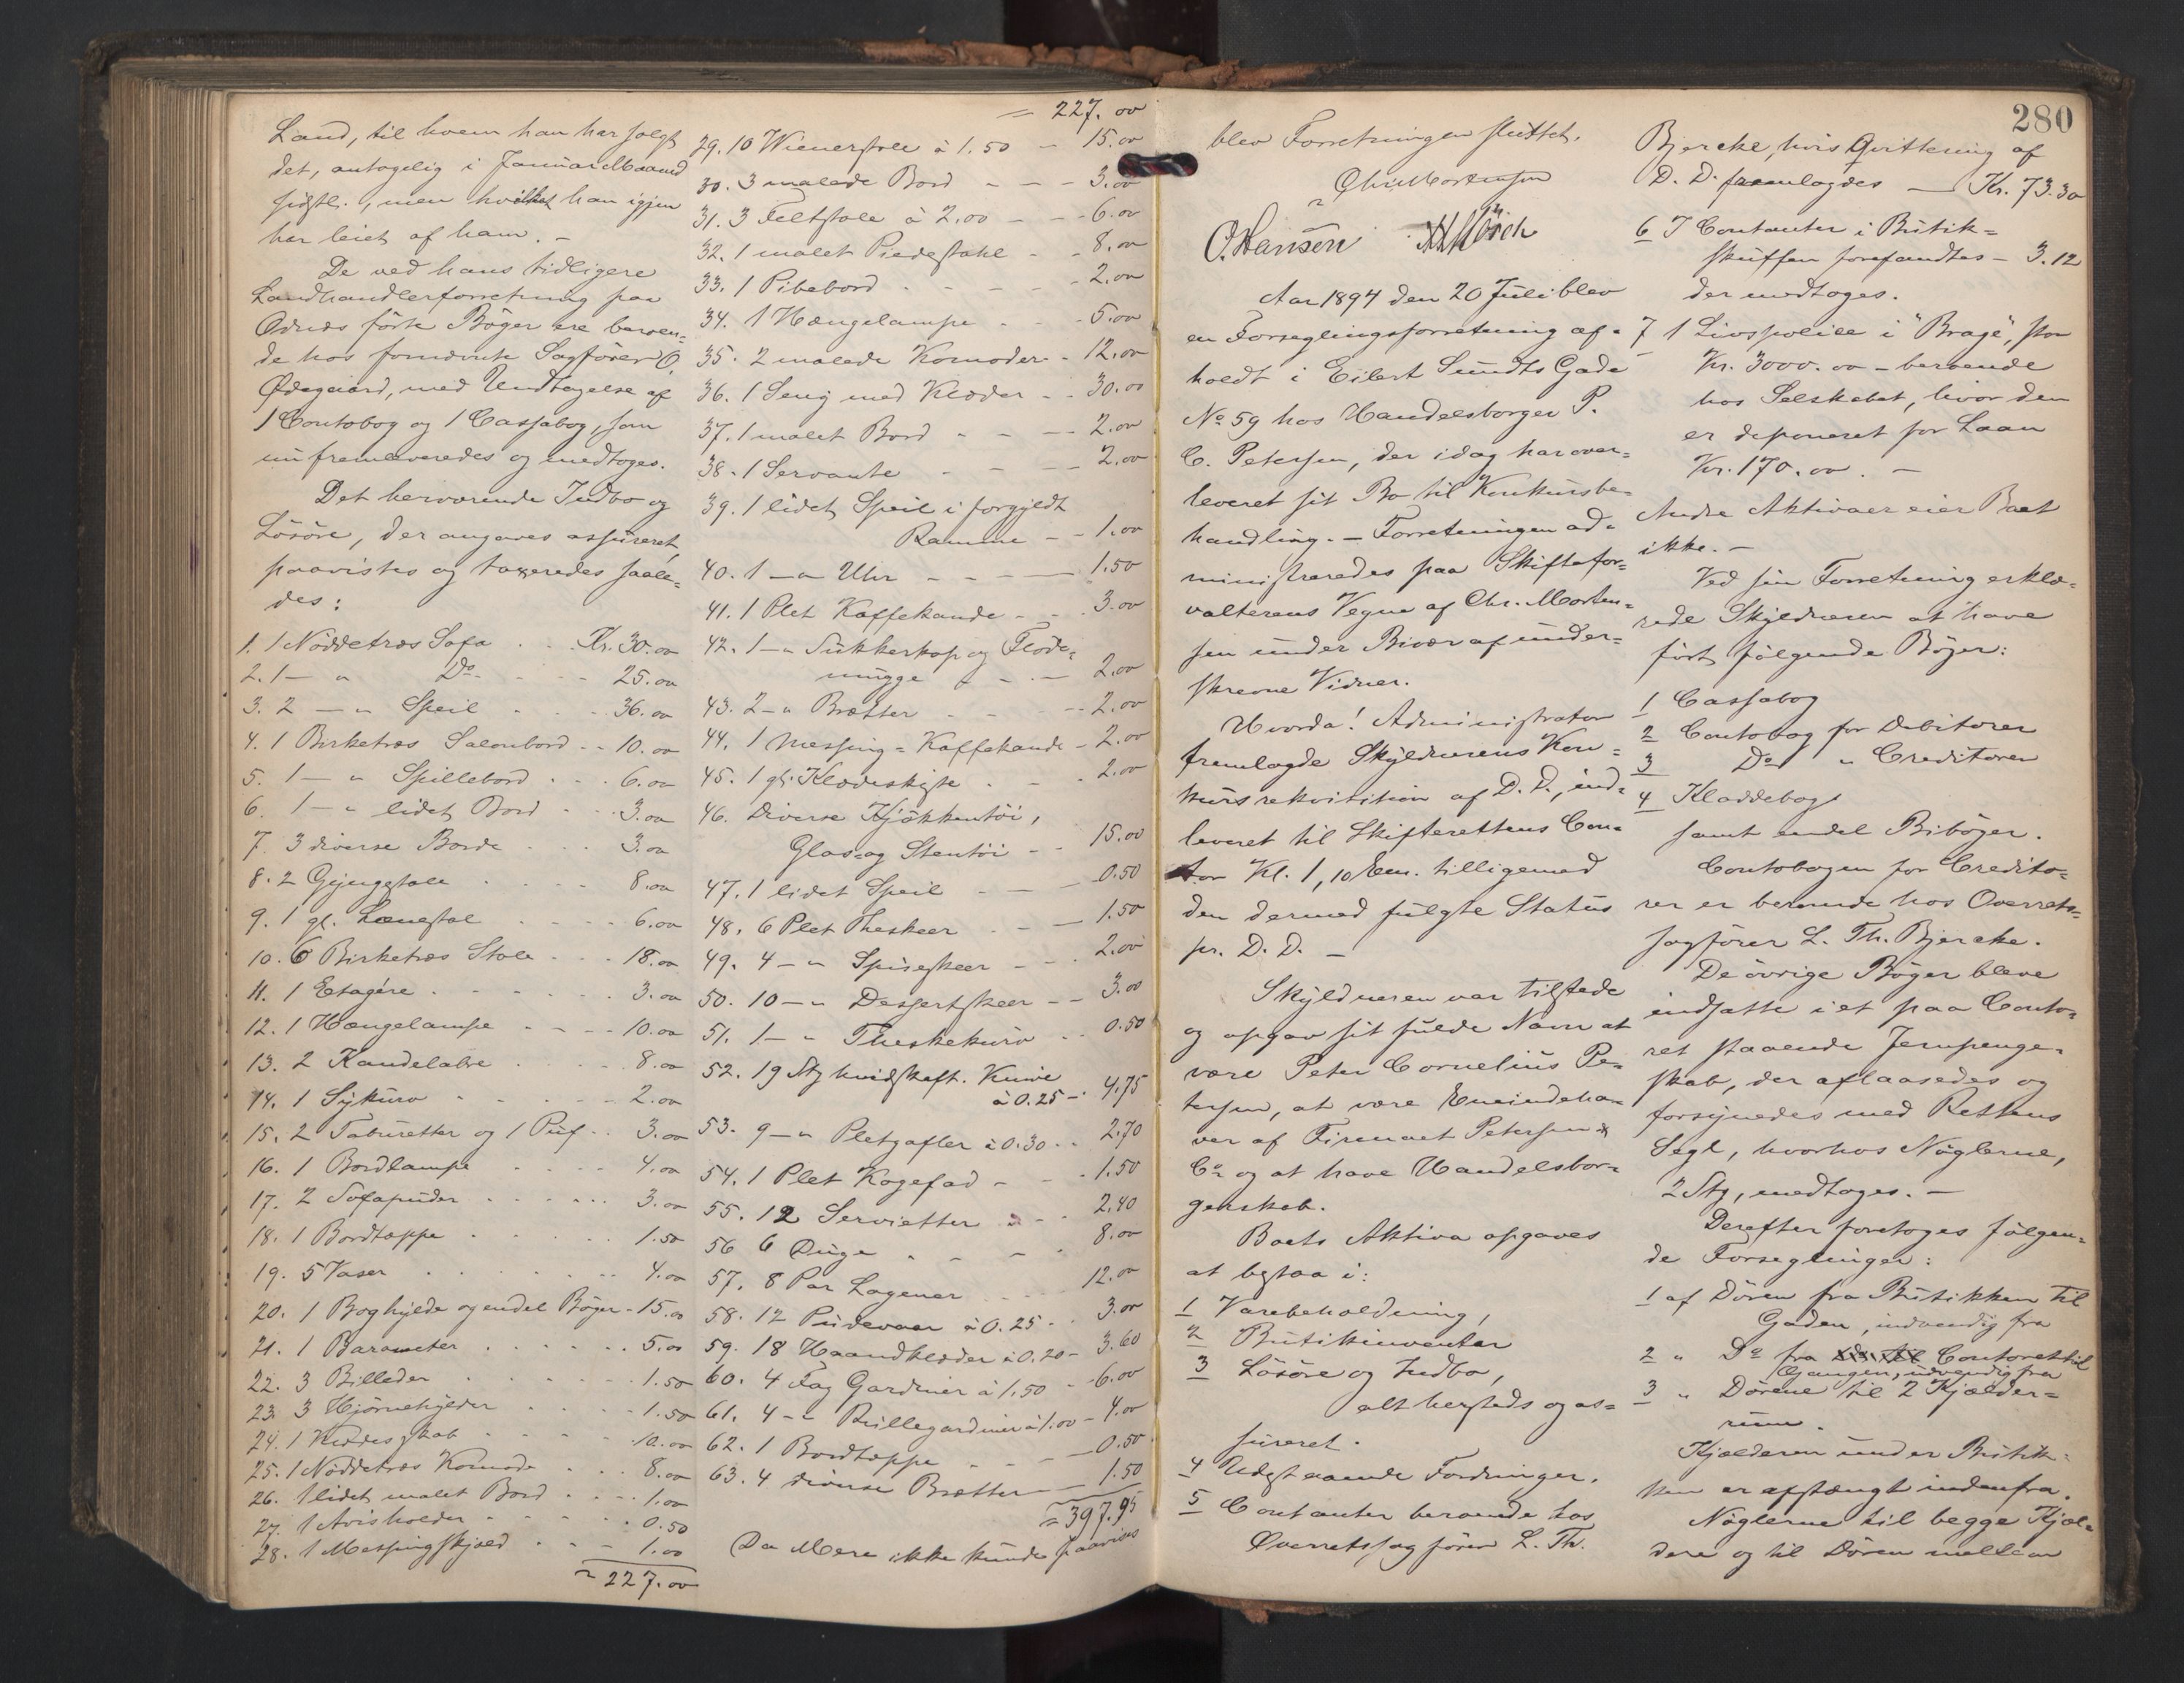 Land, til hvem han har solgt
det, antagelig i Januar Maaned
sidstl., men hvilket han igjen
har leiet af ham. –
De ved hans tidligere
Landhandlerforretning paa
Odnæs förte Böger ere beroen-
de hos fornævnte Sagförer O.
Ødegaard, med Undtagelse af
1 Contobog og 1 Cassabog, som
nu fremleveredes og medtoges.
Det herværende Indbo og
Lösöre, der angaves assureret,
paavistes og taxeredes saale-
des:
1. 1 Nöddetræs Sofa . . Kr. 30.00
2. 1 — " Do . . . 25.00
3. 2 — " Speil . . . 36.00
4. 1 Birketræs Salonbord . . 10.00
5. 1 — " Spillebord . . . 6.00
6. 1 — " lidet Bord . . . 3.00
7. 3 diverse Borde . . . 3.00
8. 2 Gyngestole . . . . 8.00
9. 1 gl. Lænestol . . . . 6.00
10. 6 Birketræs Stole . . . 18.00
11. 1 Etagére . . . . . 3.00
12. 1 Hængelampe . . . . 10.00
13. 2 Kandelabre . . . . 8.00
14. 1 Sykurv . . . . . 2.00
15. 2 Taburetter og 1 Puf . . 3.00
16. 1 Bordlampe . . . . 4.00
17. 2 Sofapuder . . . . . 3.00
18. 1 Bordtæppe . . . . . 1.50
19. 5 Vaser . . . . . . 4.00
20. 1 Boghylde og endel Böger - 15.00
21. 1 Barometer . . . . . . 5.00
22. 3 Billeder . . . . . . 1.50
23. 3 Hjörnehylder . . . . 1.50
24. 1 Klædesskab . . . . 10.00
25. 1 Nöddetræs Komode . . . 8.00
26. 1 lidet malet Bord . . . . 1.00
27. 1 Avisholder . . . . . . 0.50
28. 1 Messingskjold . . . 1.00
= 227.00
= 227.00
29. 10 Wienerstole à 1.50 — 15.00
30. 3 malede Bord - - - 3.00
31. 3 Feltstole à 2.00 - - - 6.00
32. 1 malet Piedestahl - - 8.00
33. 1 Pibebord . - - - 2.00
34. 1 Hængelampe . - - 5.00
35. 2 malede Komoder - . 12.00
36. 1 Seng med Klæder . . 30.00
37. 1 malet Bord - - - 2.00
38. 1 Servante - - - 2.00
39. 1 lidet Speil i forgyldt
Ramme - - 1.00
40. 1 — " Uhr - - - — 1.50
41. 1 Plet Kaffekande - - . 3.00
42. 1 — " Sukkerkop og Flöde-
mugge - - . — 2.00
43. 2 — " Bretter - - - - 2.00
44. 1 Messing-Kaffekande - 2.00
45. 1 gl. Klædeskiste - - . 2.00
46. Diverse Kjökkentöi,
Glas og Stentöi - - 15.00
47. 1 lidet Speil - - — 0.50
48. 6 Plet Theskeer - - — 1.50
49. 4 — " Spiseskeer - - . 2.00
50. 10 — " Dessertskeer - - 3.00
51. 1 — " Theskekurv . . 0.50
52. 19 Stk hvidskaft. Knive
à 0.25 - . 4.75
53. 9 — " Pletgafler à 0.30 . . 2.70
54. 1 Plet Kagefad - - . 1.50
55. 12 Servietter . . . 2.40
56 6 Duge . - - . 8.00
57. 8 Par Lagener . . . . 12.00
58. 12 Pudevaar à 0.25 - . 3.00
59. 18 Haandklæder à 0.20 - 3.60
60. 4 Fag Gardiner à 1.50 - 6.00
61. 4 — " Rullegardiner à 1.00 - 4.00
62. 1 Bordtæppe - - - — 0.50
63. 4 diverse Bretter — 1.50
= 397.95
Da Mere ikke kunde paavises
280
blev Forretningen sluttet.
Chr. Mortensen
O. Hansen
Aar 1894 den 20 Juli blev
en Forseglingsforretning af-
holdt i Eilert Sundts Gade
No 59 hos Handelsborger P.
C. Petersen, der idag har over-
leveret sit Bo til Konkursbe-
handling. – Forretningen ad-
ministreredes paa Skiftefor-
valterens Vegne af Chr. Morten-
sen under Bivær af under-
skrevne Vidner.
Hvorda! Administrator
fremlagde Skyldnerens Kon-
kursrekvisition af D. D., ind-
leveret til Skifterettens Con-
tor Kl. 1,10 Em. tilligemed
den dermed fulgte Status
pr. D. D. –
Skyldneren var tilstede
og opgav sit fulde Navn at
være Peter Cornelius Pe-
tersen, at være Eneindeha-
ver af Firmaet Petersen &
Co og at have Handelsbor-
gerskab.
Boets Aktiva opgaves
at bestaa i:
1 Varebeholdning,
2 Butikinventar
3 Lösöre og Indbo,
alt hersteds og as-
sureret.
4 Udestaaende Fordringer.
5 Contanter beroende hos
Overretssagförer L. Th.
Bjercke, hvis Qvittering af
D. D. fremlagdes — Kr. 73.30
6 I Contanter i Butik-
skuffen forefandtes — 3.12
der medtoges.
7 1 Livspolice i "Brage", stor
Kr. 3000.00 – beroende
hos Selskabet, hvor den
er deponeret for Laan
Kr. 170.00. –
Andre Aktivaer eier Boet
ikke. –
Ved sin Forretning erklæ-
rede Skyldneren at have
fört fölgende Böger:
1 Cassabog
2 Contobog for Debitorer
3 Do " Creditorer
4 Kladdebog
samt endel Biböger.
Contobogen for Credito-
rer er beroende hos Overrets-
sagförer L. Th. Bjercke.
De övrige Böger bleve
indsatte i et paa Conto-
ret staaende Jernpenge-
skab, der aflaasedes og
forsynedes med Rettens
Segl, hvorhos Nöglerne,
2 Stk, medtoges. –
Derefter foretoges fölgen-
de Forseglinger:
1 af Dören fra Butikken til
Gaden, indvendig fra
2 " Do fra Contoret til
Gangen, udvendig fra
3 " Dörene til 2 Kjælder-
rum.
Kjælderen under Butik-
ken er afstængt indenfra.
Nöglerne til begge Kjæl-
dere og til Dören mellem